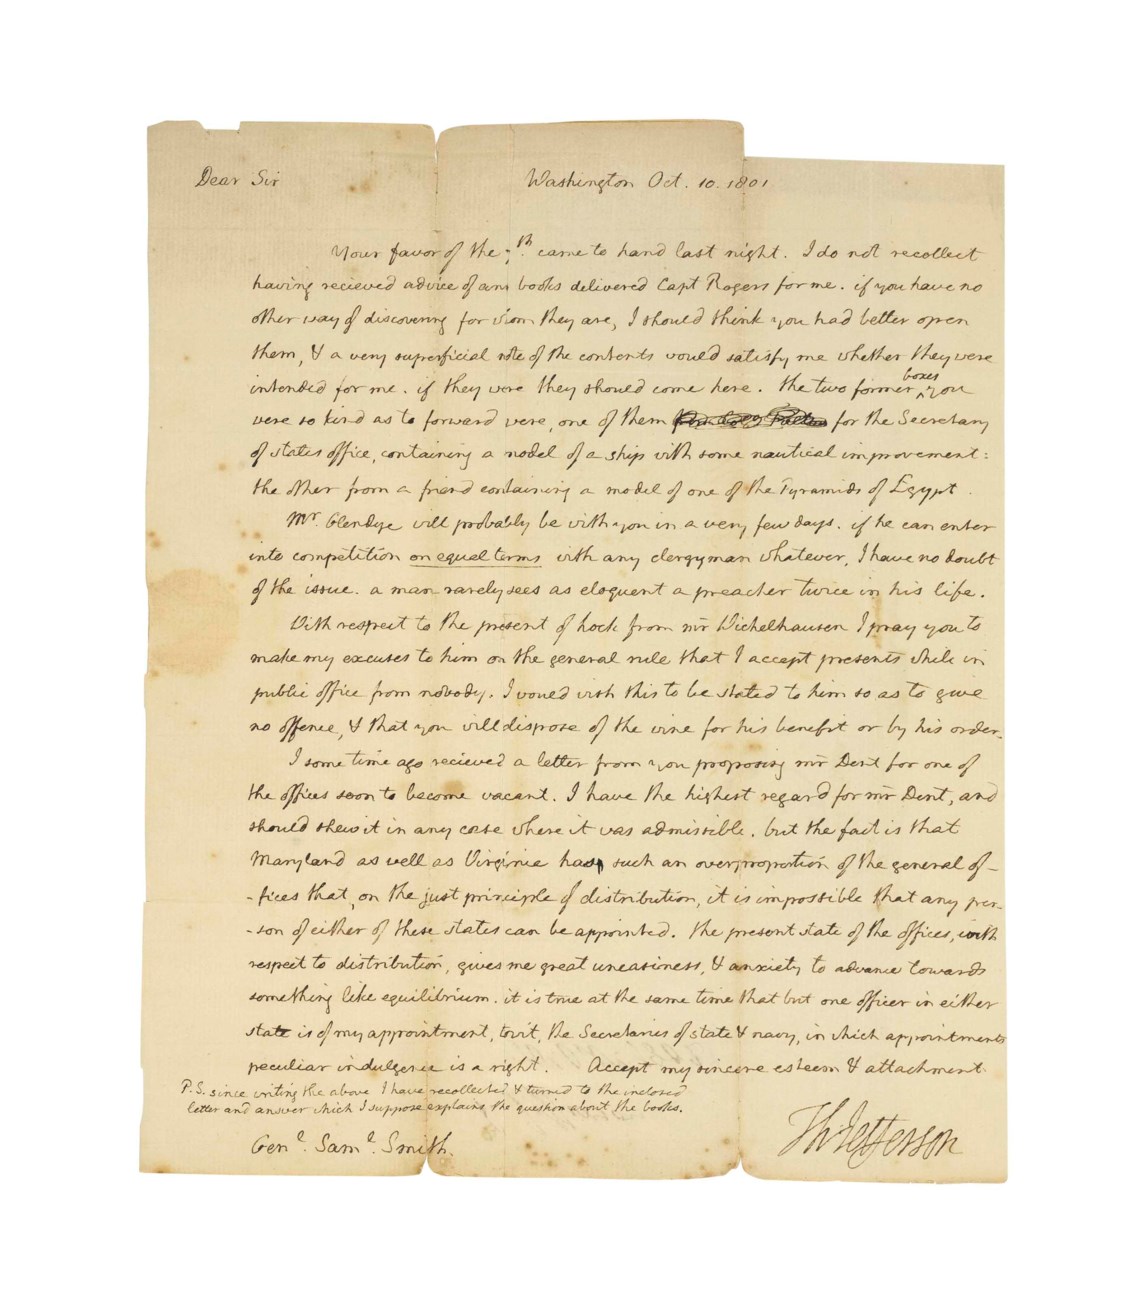 Dear Sir Washington Oct. 10. 1801
Your favor of the 7th. came to hand last night. I do not recollect
having recieved advice of any books delivered Capt Rogers for me. if you have no
other way of discovering for whom they are, I should think you had better open
them, & a very superficial note of the contents would satisfy me whether they were
intended for me. if they were they should come here. the two former boxes you
were so kind as to forward were, one of them for the Secretary
of state's office, containing a model of a ship with some nautical improvement:
the other from a friend containing a model of one of the Pyramids of Egypt.
Mr. Glendye will probably be with you in a very few days. if he can enter
into competition on equal terms with any clergyman whatever, I have no doubt
of the issue. a man rarely sees as eloquent a preacher twice in his life.
With respect to the present of hock from mr Wichelhausen I pray you to
make my excuses to him on the general rule that I accept presents while in
public office from nobody. I would wish this to be stated to him so as to give
no offence, & that you will dispose of the wine for his benefit or by his order.
I some time ago recieved a letter from you proposing mr Dent for one of
the offices soon to become vacant. I have the highest regard for mr Dent, and
should shew it in any case where it was admissible. but the fact is that
Maryland as well as Virginia has such an overproportion of the general of-
-fices that, on the just principle of distribution, it is impossible that any per-
-son of either of these states can be appointed. the present state of the offices, with
respect to distribution, gives me great uneasiness, & anxiety to advance towards
something like equilibrium. it is true at the same time that but one officer in either
state is of my appointment, towit, the Secretaries of state & navy, in which appointments
peculiar indulgence is a right. Accept my sincere esteem & attachment
P.S. since writing the above I have recollected & turned to the inclosed
letter and answer which I suppose explains the question about the books.
Th: Jefferson
Genl. Saml. Smith.